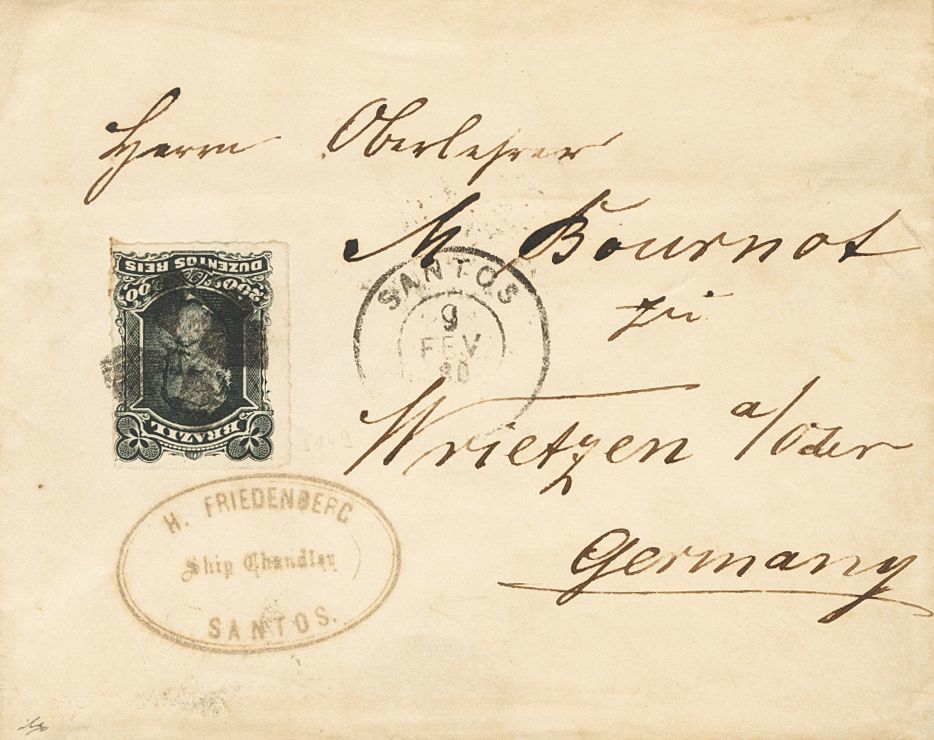 Herrn Oberlehrer
M Bournot
zu
Wrietzen a/Oder
Germany
SANTOS
9
FEV
80
DUZENTOS REIS
200 200
BRAZIL
H. FRIEDENBERG
Ship Chandler
SANTOS.